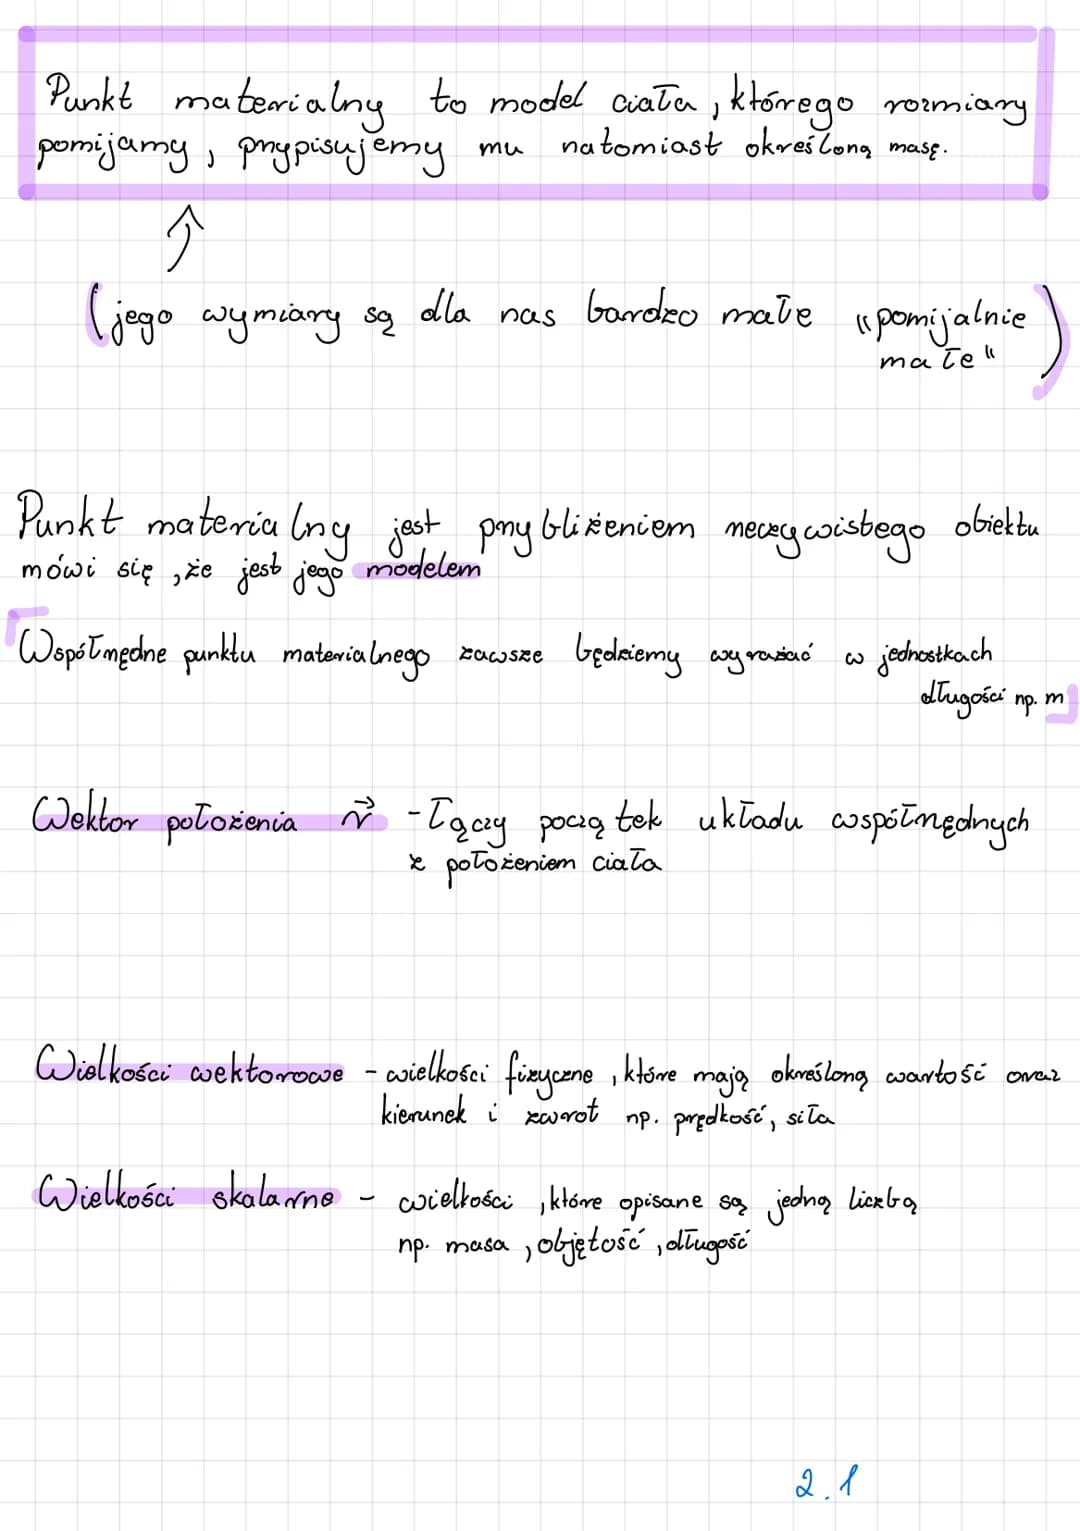 Punkt materialny to model ciała, którego rozmiary
pomijamy, przypisujemy mu natomiast określoną masę.
(jego wymiary są dla nas bardzo małe "pomijalnie
małe")
Punkt materialny jest przybliżeniem rzeczywistego obiektu
mówi się, że jest jego modelem
Współrzędne punktu materialnego zawsze będziemy wyrażać w jednostkach
długości np. m
Wektor położenia r⃗ - łączy początek układu współrzędnych
z położeniem ciała
Wielkości wektorowe - wielkości fizyczne, które mają określoną wartość oraz
kierunek i zwrot np. prędkość, siła
Wielkości skalarne - wielkości, które opisane są jedną liczbą
np. masa, objętość, długość
2.1